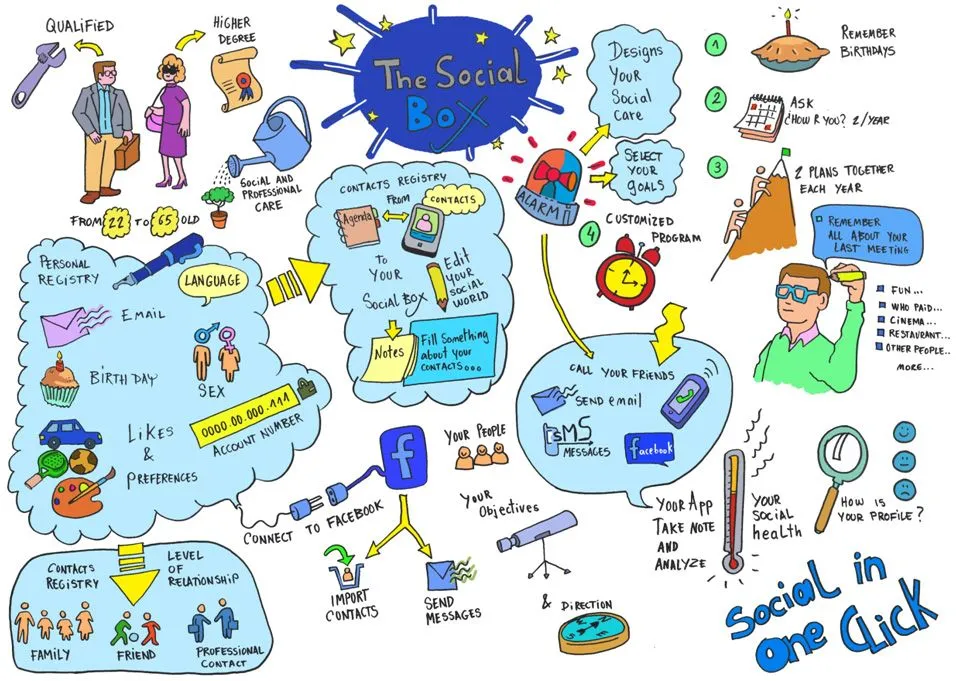 QUALIFIED
HIGHER
DEGREE
The Social
Box
SOCIAL AND
PROFESSIONAL
CARE
FROM 22 TO 65 OLD
DESIGNS
YOUR
SOCIAL
CARE
SELECT
YOUR
GOALS
ALARM
1
REMEMBER
BIRTHDAYS
2
ASK
¿HOW R YOU? 2/YEAR
3
2 PLANS TOGETHER
EACH YEAR
4
CUSTOMIZED
PROGRAM
REMEMBER
ALL ABOUT YOUR
LAST MEETING
FUN...
WHO PAID...
CINEMA...
RESTAURANT...
OTHER PEOPLE..
MORE...
PERSONAL
REGISTRY
LANGUAGE
EMAIL
BIRTHDAY
SEX
LIKES
&
PREFERENCES
0000.00.000.111
ACCOUNT NUMBER
CONTACTS REGISTRY
FROM
CONTACTS
Agenda
TO
YOUR
SOCIAL BOX
Edit
your
social
world
Notes
Fill something
about your
contacts...
CALL YOUR FRIENDS
SEND email
SMS
MESSAGES
facebook
f
YOUR PEOPLE
CONNECT TO FACEBOOK
IMPORT
CONTACTS
SEND
MESSAGES
Your
Objectives
& DIRECTION
YOUR APP
TAKE NOTE
AND
ANALYZE
YOUR
SOCIAL
heALTH
HOW IS
YOUR PROFILE?
CONTACTS
REGISTRY
LEVEL
OF
RELATIONSHIP
FAMILY
FRIEND
PROFESSIONAL
CONTACT
Social in
one CLICK